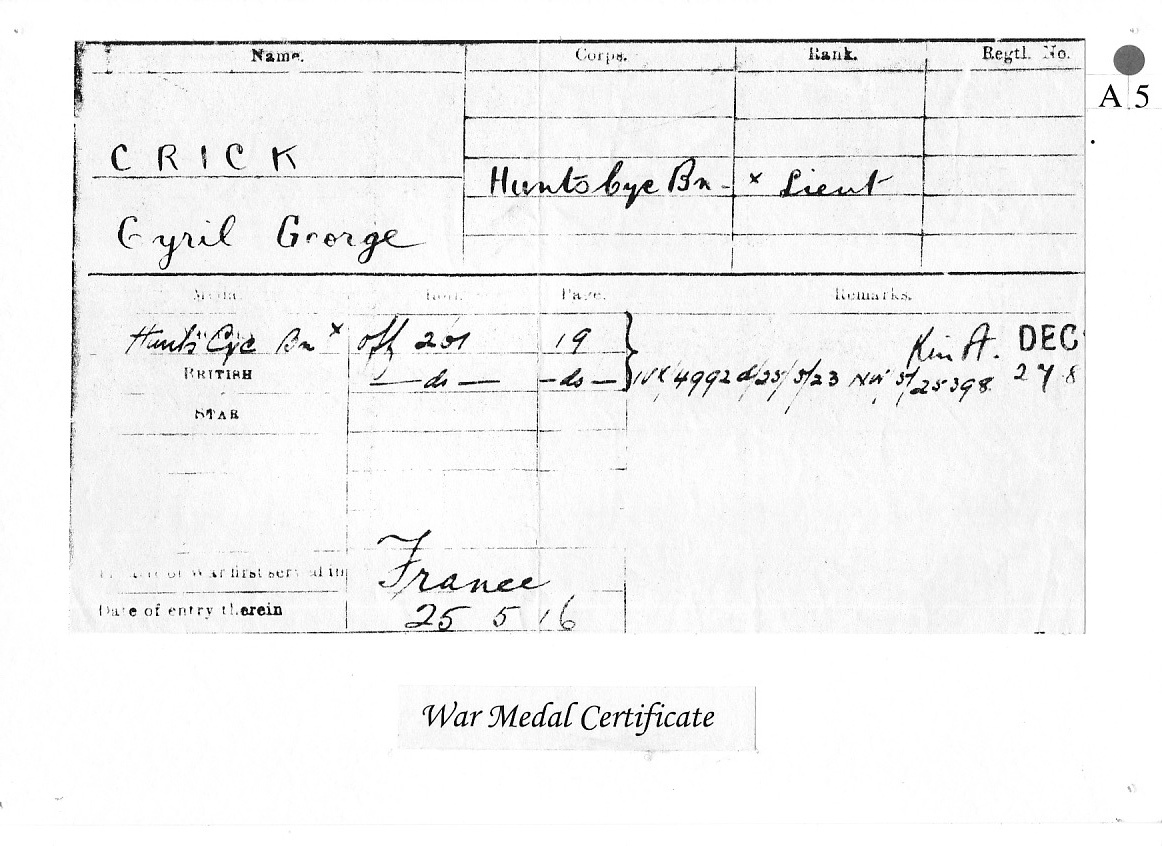 Name. Corps. Rank. Regtl. No.
A 5
CRICK
Hunts Cyc Bn - x Lieut
Cyril George
Medal. Roll. Page. Remarks.
Hunts Cyc Bn x Off 201 19 DEC
BRITISH — do — — do — IVX/4992 d/25/5/23 NW 5/25398 2 7 8
STAR
Theatre of War first served in France
Date of entry therein 25 5 16
War Medal Certificate